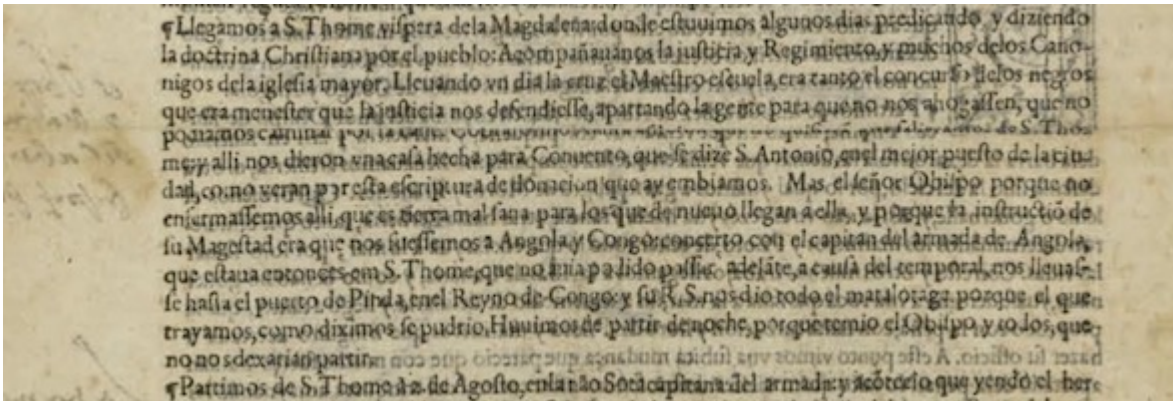 ¶Llegamos a S. Thome vispera dela Magdalena: donde estuuimos algunos dias predicando, y diziendo
la doctrina Christiana por el pueblo: Acompañauãnos la justicia y Regimiento, y muchos delos Cano-
nigos dela iglesia mayor. Lleuando vn dia la cruz el Maestro escuela era tanto el concurso delos negros
que era menester que la justicia nos defendiesse, apartando la gente para que no nos ahogassen, que no
podiamos caminar por la de S. Tho-
me: y alli nos dieron vna casa hecha para Conuento, que se dize S. Antonio, enel mejor puesto de la ciu
dad, como veran por esta escriptura de donacion que ay embiamos. Mas el señor Obispo porque no
enfermassemos alli, que es tierra mal sana para los que de nueuo llegan a ella, y porque la instructiõ de
su Magestad era que nos fuessemos a Angola y Congo: concerto con el capitan del armada de Angola,
que estaua entonces em S. Thome, que no auia podido passar adelãte, a causa del temporal, nos lleuas-
se hasta el puerto de Pinda, enel Reyno de Congo: y su R. S. nos dio todo el matalotage porque el que
trayamos, como diximos se pudrio. Huuimos de partir de noche, porque temio el Obispo y todos, que
no nos dexarian partir.
¶Partimos de S. Thome a 2. de Agosto, en la não Sota capitana del armada: y acõtecio que yendo el her